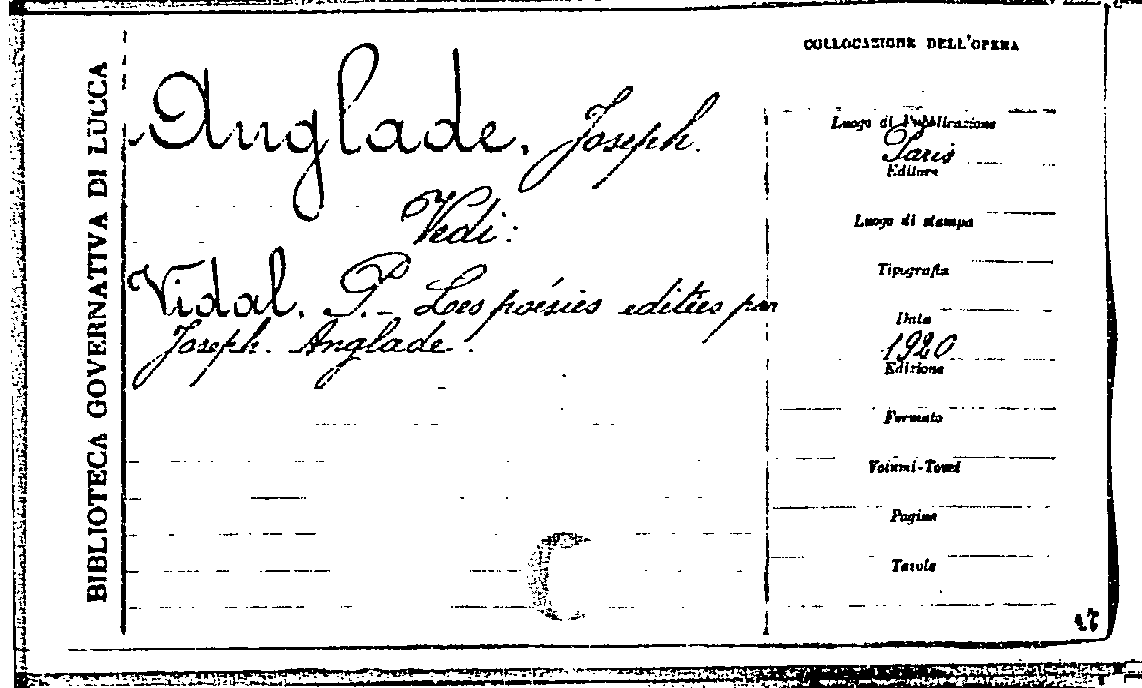 BIBLIOTECA GOVERNATIVA DI LUCCA
Anglade, Joseph.
Vedi:
Vidal. P. - Les poésies editées par
Joseph. Anglade.
COLLOCAZIONE DELL'OPERA
Luogo di Pubblicazione
Paris
Editore
Luogo di stampa
Tipografia
Data
1920
Edizione
Formato
Volumi-Tomi
Pagine
Tavole